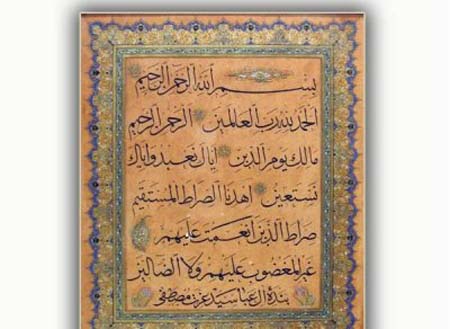 بسم الله الرحمن الرحيم
الحمد لله رب العالمين الرحمن الرحيم
مالك يوم الدين اياك نعبد واياك
نستعين اهدنا الصراط المستقيم
صراط الذين انعمت عليهم
غير المغضوب عليهم ولا الضالين
بنده ال عبا سيد عزت مصطفى